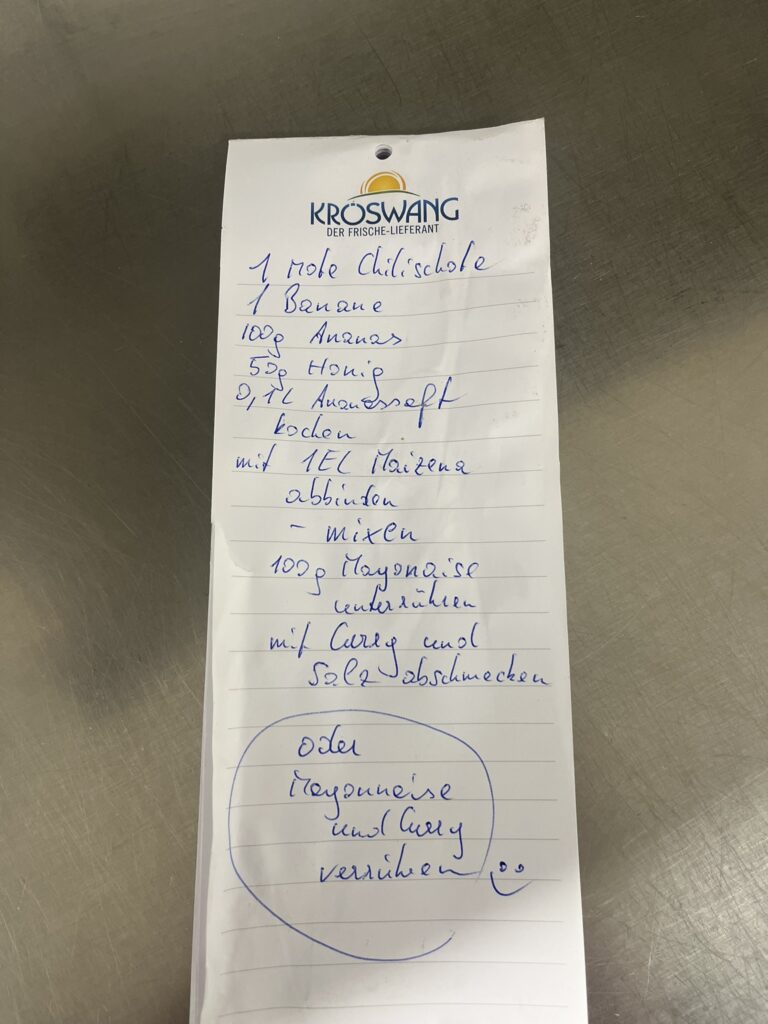 KRÖSWANG
DER FRISCHE-LIEFERANT
1 rote Chilischote
1 Banane
100g Ananas
50g Honig
0,1L Ananassaft
kochen
mit 1EL Maizena
abbinden
- mixen
100g Mayonaise
unterrühren
mit Curry und
Salz abschmecken
oder
Mayonnaise
und Curry
verrühren